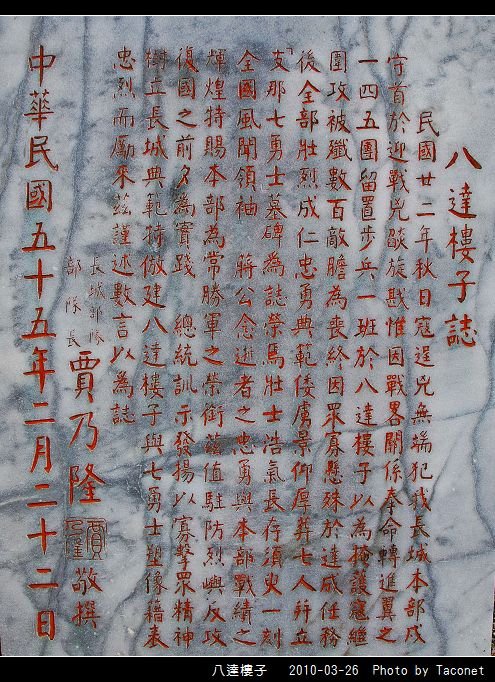 八達樓子誌
民國廿二年秋日寇逞兇無端犯我長城本部戍
守首於迎戰兇燄旋戢惟因戰畧關係奉命轉進翼之
一四五團留置步兵一班於八達樓子以為掩護寇繼
圍攻被殲數百敵膽為喪終因眾寡懸殊於達成任務
後全部壯烈成仁忠勇典範倭虜景仰厚葬七人幷立
「支那七勇士墓碑為誌榮焉壯士浩氣長存須臾一刻
全國風聞領袖 蔣公念逝者之忠勇與本部戰績之
輝煌特賜本部為常勝軍之榮銜茲值駐防烈嶼反攻
復國之前夕為實踐 總統訓示發揚以寡擊眾精神
樹立長城典範特倣建八達樓子與七勇士塑像藉表
忠烈而勵來茲謹述數言以為誌
長城部隊
部隊長
賈乃隆 敬撰
中華民國五十五年二月二十二日
八達樓子 2010-03-26 Photo by Taconet